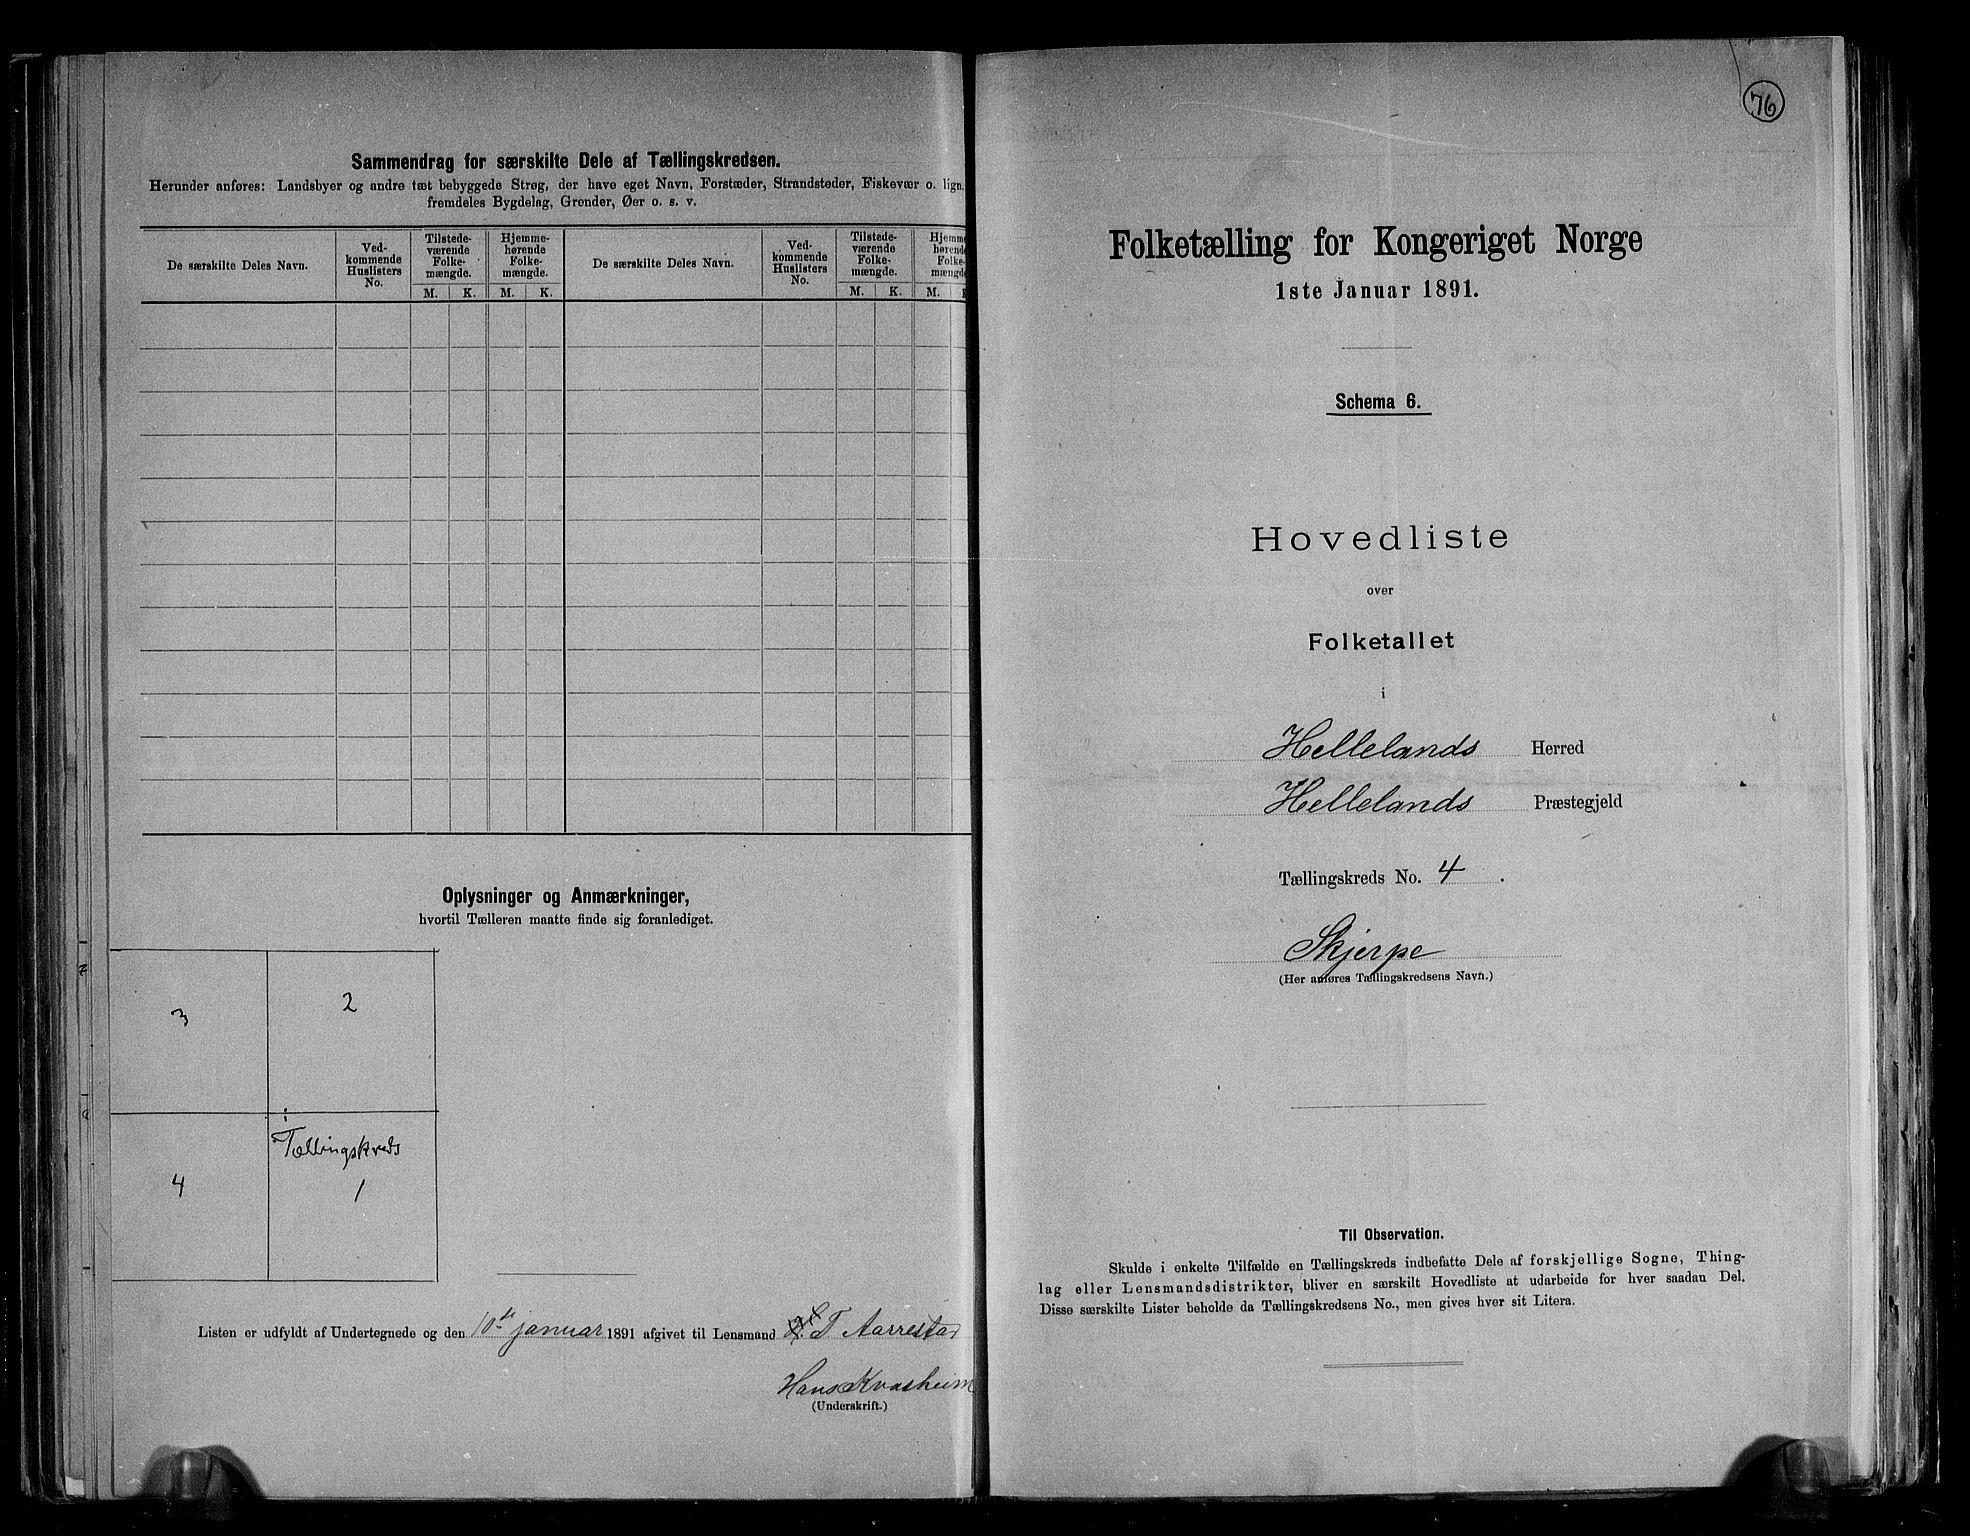 Sammendrag for særskilte Dele af Tællingskredsen.
Herunder anføres: Landsbyer og andre tæt bebyggede Strøg, der have eget Navn, Forstæder, Strandsteder, Fiskevær o. lign.
fremdeles Bygdelag, Grender, Øer o. s. v.
De særskilte Deles Navn.
Ved-
kommende
Huslisters
No.
Tilstede-
værende
Folke-
mængde.
Hjemme-
hørende
Folke-
mængde.
De særskilte Deles Navn.
Ved-
kommende
Huslisters
No.
Tilstede-
værende
Folke-
mængde.
Hjemme
hørende
Folke-
mængde
M. K. M. K. M. K. M.
Oplysninger og Anmærkninger,
hvortil Tælleren maatte finde sig foranlediget.
3 2
4 Tællingskreds
1
Listen er udfyldt af Undertegnede og den 10de januar 1891 afgivet til Lensmand T Aarrestad
Hans Kvasheim
(Underskrift.)
76
Folketælling for Kongeriget Norge
1ste Januar 1891.
Schema 6.
Hovedliste
over
Folketallet
i
Hellelands Herred
Hellelands Præstegjeld
Tællingskreds No. 4.
Skjerpe
(Her anføres Tællingskredsens Navn.)
Til Observation.
Skulde i enkelte Tilfælde en Tællingskreds indbefatte Dele af forskjellige Sogne, Thing-
lag eller Lensmandsdistrikter, bliver en særskilt Hovedliste at udarbeide for hver saadan Del.
Disse særskilte Lister beholde da Tællingskredsens No., men gives hver sit Litera.